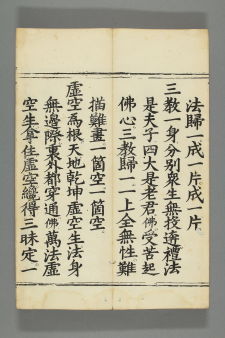 法歸一成一片成一片
三教一身分別衆生無投逩禮法
是夫子四大是老君佛受苦起
佛心三教歸一一上全無性難
描難畫一箇空一箇空
虛空爲根天地乾坤虛空生法身
無邊際東西都穿通佛萬法虛
空生拿住虛空纔得三昧定一